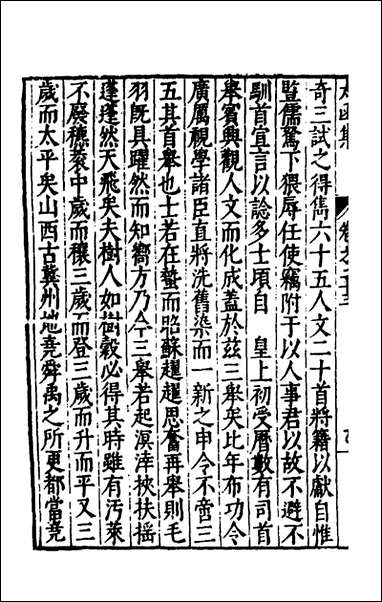 太函集
卷之二十三
奇三試之得雋六十五人文二十首將籍以獻自惟
暨儒駑下猥辱任使竊附于以人事君以故不避不
馴首宣言以諗多士頃自 皇上初受曆數有司首
舉賓興觀人文而化成蓋於茲三舉矣比年布功令
廣厲視學諸臣直將洗舊染而一新之申令不啻三
五其首舉也士若在蟄而昭蘇趯趯思奮再舉則毛
羽既具躍然而知嚮方乃今三舉若起溟涬挾扶搖
蓬蓬然天飛矣夫樹人如樹穀必得其時雖有汚萊
不廢穮蔉中歲而穰三歲而登三歲而升而平又三
歲而太平矣山西古冀州地堯舜禹之所更都當堯